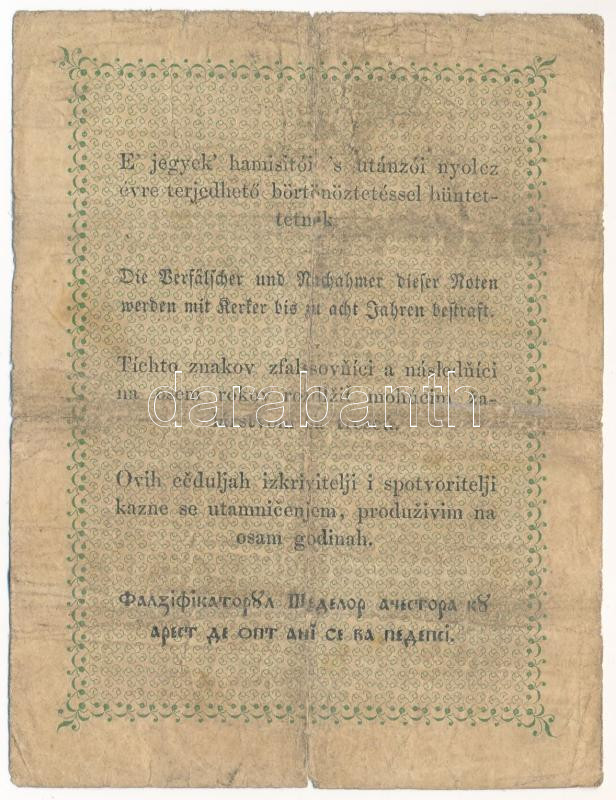 E' jegyek' hamisítói 's utánzói nyolcz
évre terjedhető börtönöztetéssel büntet-
tetnek.
Die Verfälscher und Nachahmer dieser Noten
werden mit Kerker bis zu acht Jahren bestraft.
Tíchto znakov zfalšovňíci a následňíci
na osem rokov mohúcim za-
Ovih cěduljah izkrivitelji i spotvoritelji
kazne se utamničenjem, produživim na
osam godinah.
Фалзіфікаторꙋл Шеделор ачестора кꙋ
арест де опт анĭ се ва педепсі.
darabanth